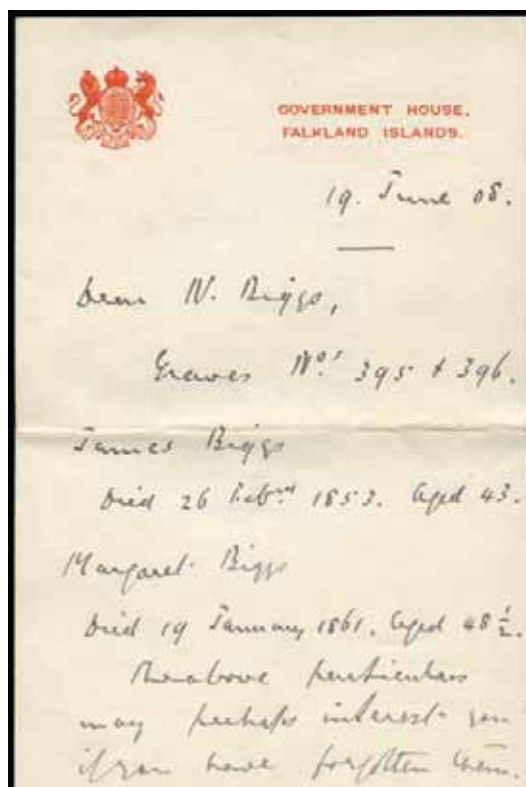 GOVERNMENT HOUSE,
FALKLAND ISLANDS.
19. June 08.
Dear W. Biggs,
Graves Nos 395 & 396.
James Biggs
Died 26 Febry 1853. Aged 43.
Margaret Biggs
Died 19 January 1861. Aged 48 1/2.
The above particulars
may perhaps interest you
if you have forgotten them.